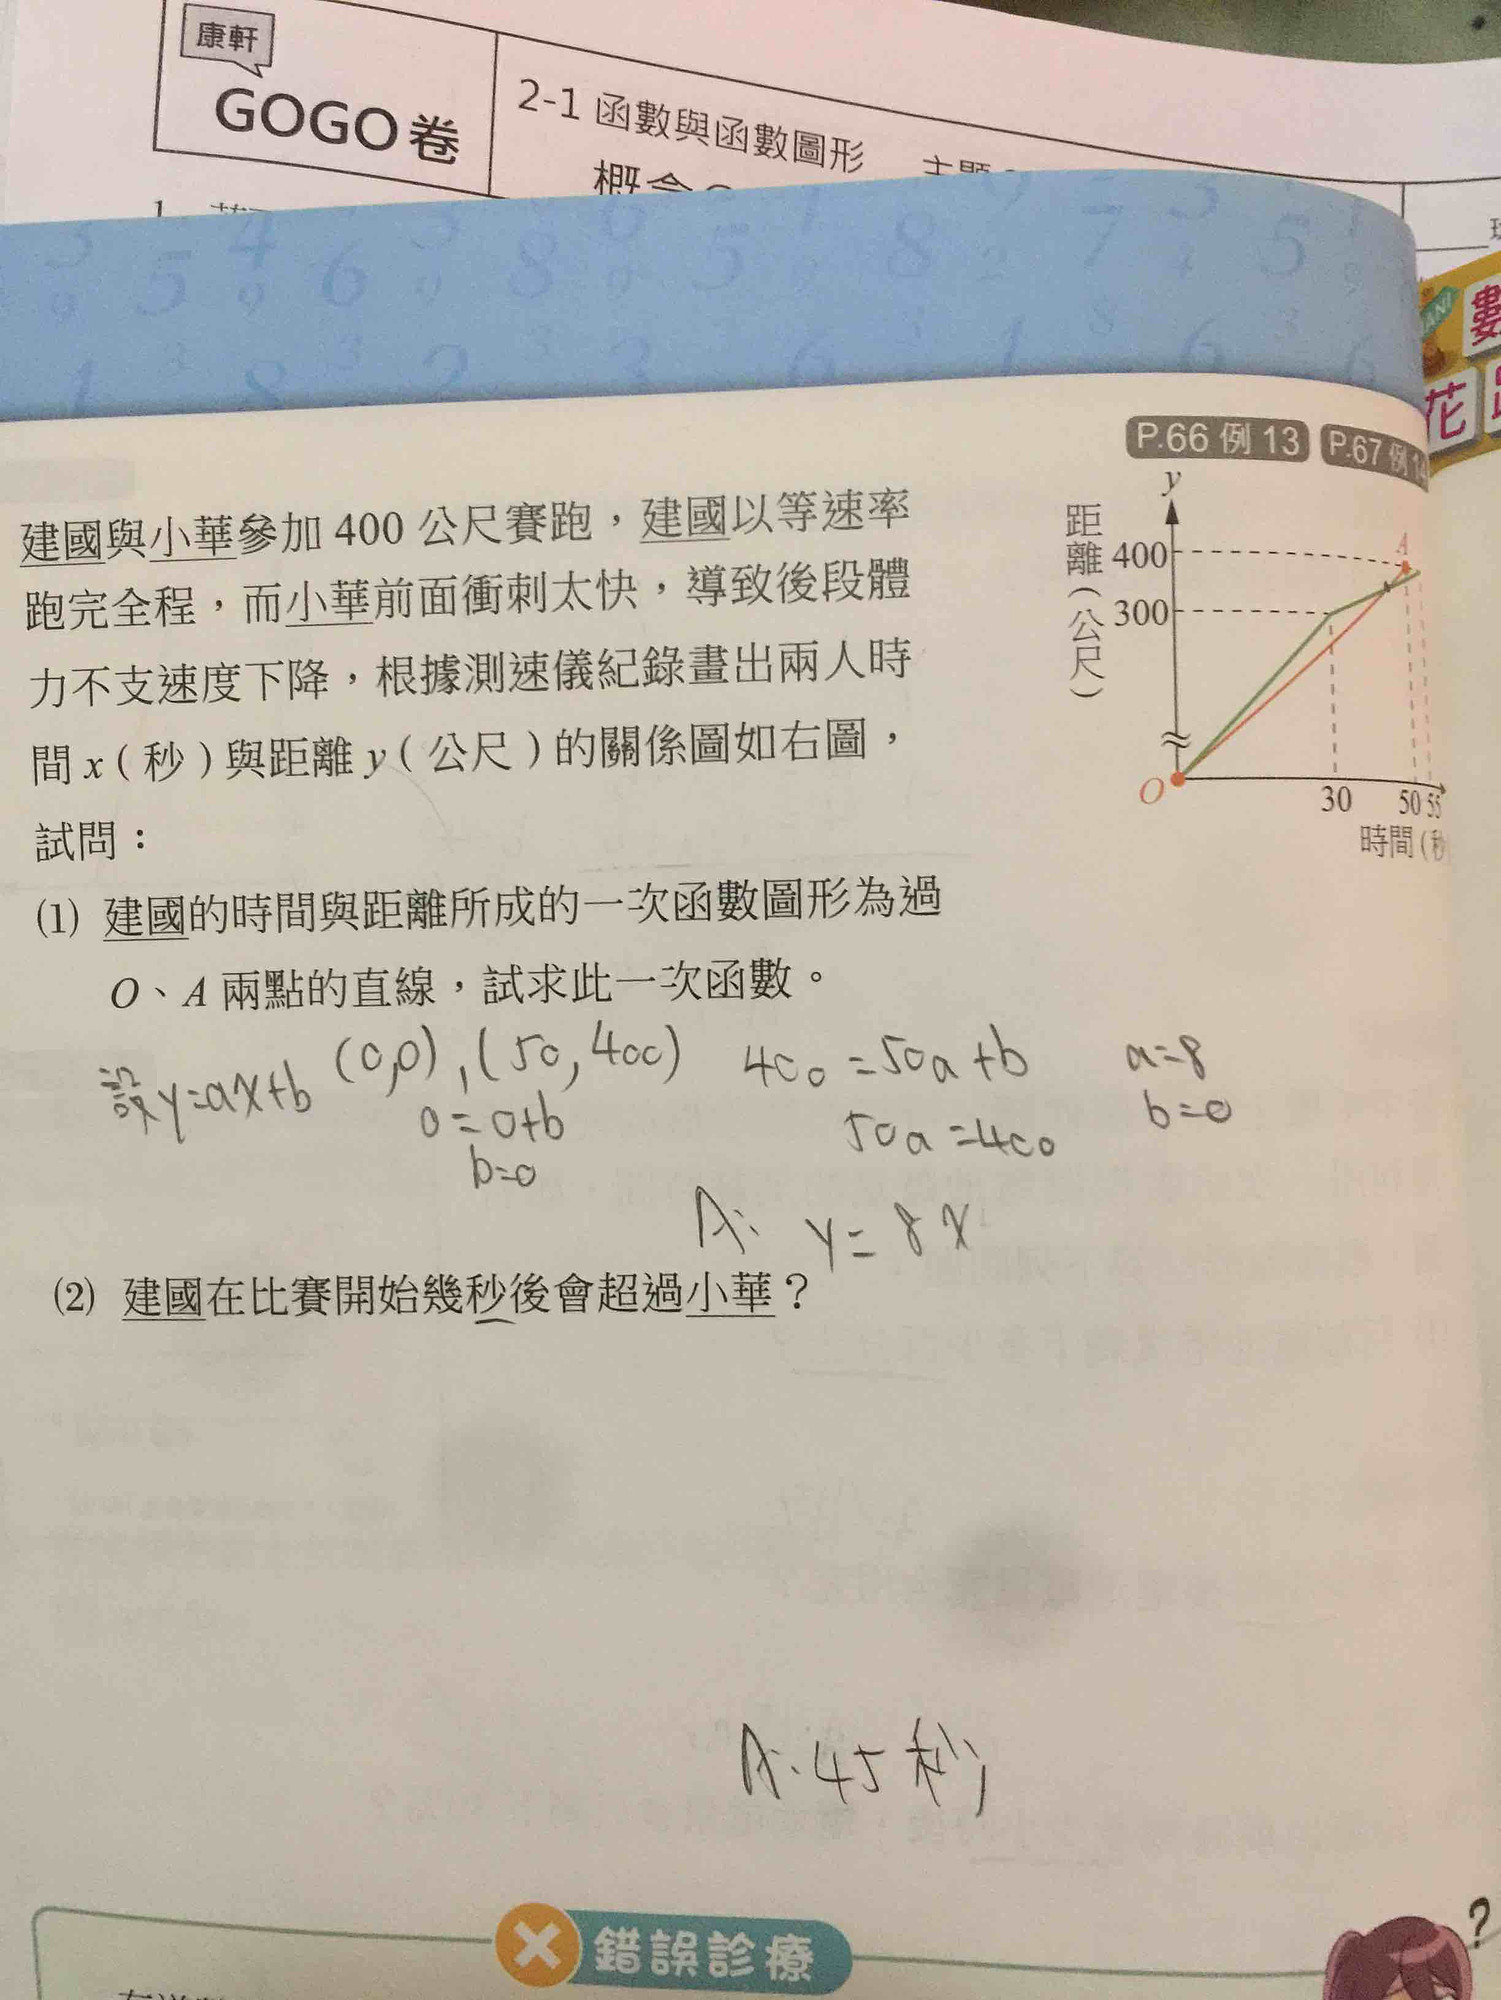 康軒
GOGO卷
2-1 函數與函數圖形
P.66 例 13
P.67 例 14
建國與小華參加 400 公尺賽跑，建國以等速率
跑完全程，而小華前面衝刺太快，導致後段體
力不支速度下降，根據測速儀紀錄畫出兩人時
間 x（秒）與距離 y（公尺）的關係圖如右圖，
試問：
y
距離（公尺）
400
300
A
O
30
50
55
時間（秒
(1) 建國的時間與距離所成的一次函數圖形為過
O、A 兩點的直線，試求此一次函數。
設 y=ax+b (0,0),(50,400) 400=50a+b a=8
0=0+b 50a=400 b=0
b=0
A: y=8x
(2) 建國在比賽開始幾秒後會超過小華？
A:45秒
錯誤診療
?
數
花